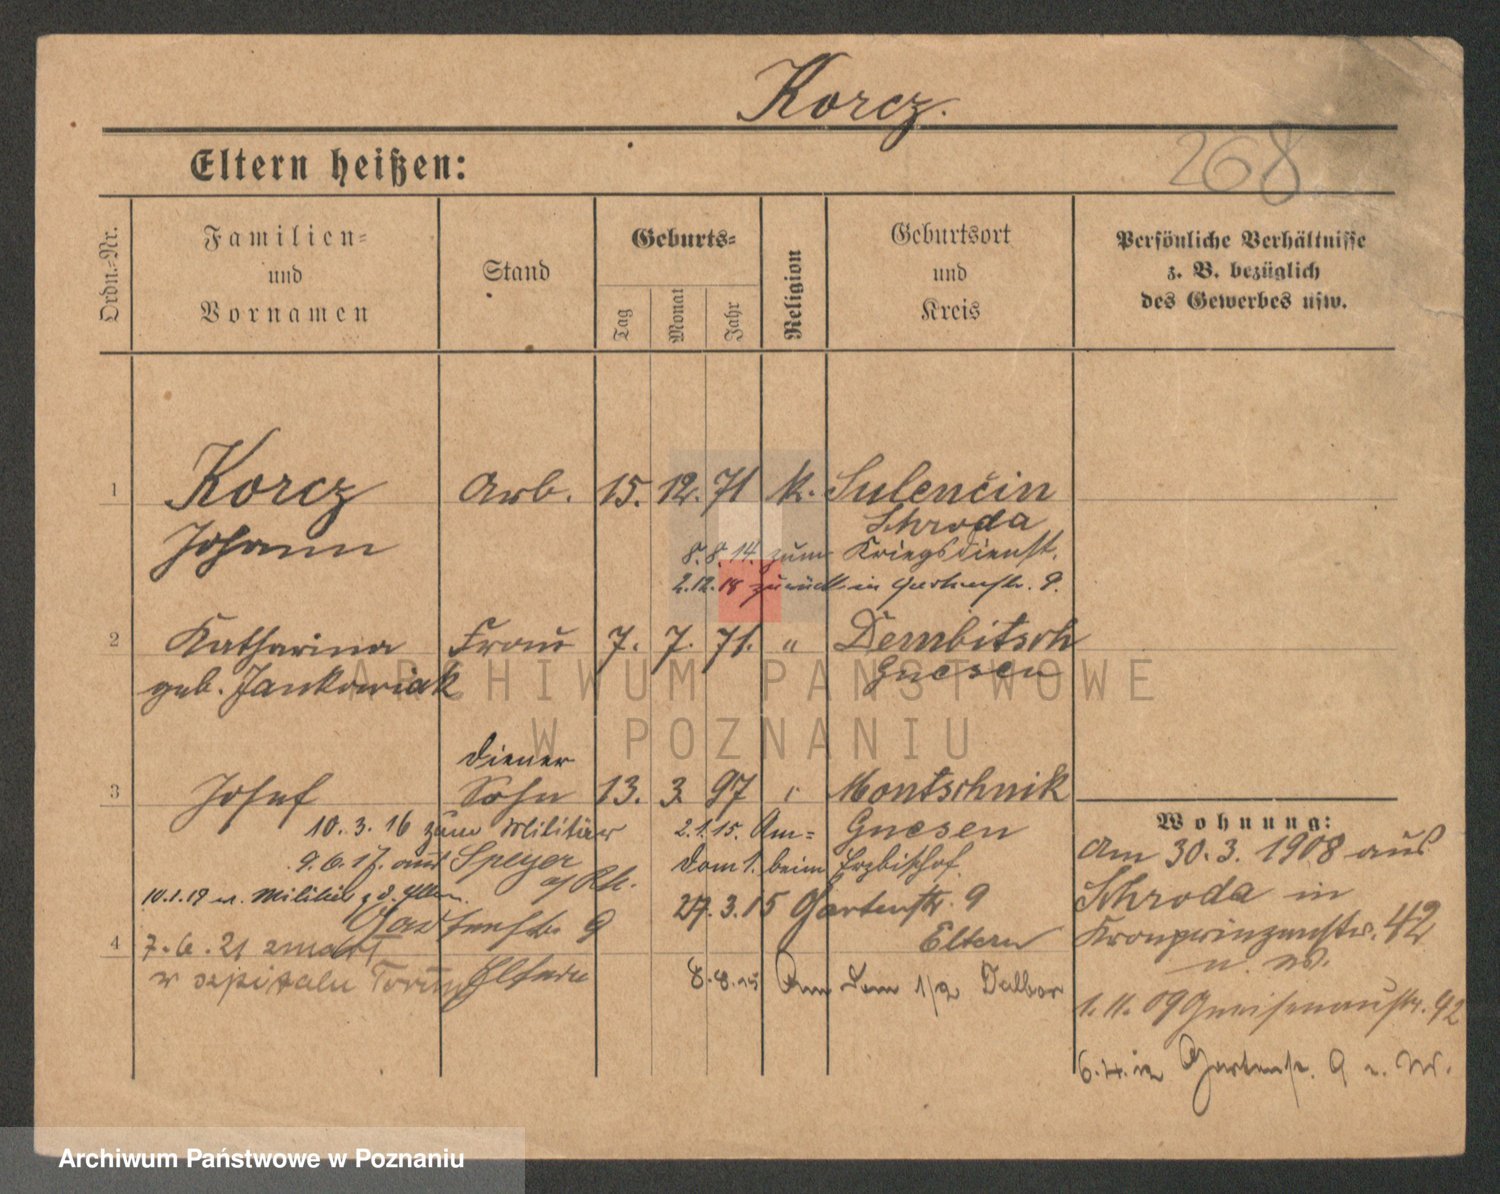 Korcz.
268
Eltern heißen:
Ordn.-Nr.
Familien-
und
Vornamen
Stand
Geburts-
Tag
Monat
Jahr
Religion
Geburtsort
und
Kreis
Persönliche Verhältnisse
z. B. bezüglich
des Gewerbes usw.
1 Korcz Arb. 15. 12. 71 k. Sulencin
Johann Schroda
8.8.14. zum Kriegsdienst.
2.12.18 zurück in Gartenstr. 9.
2 Katharina Frau 7. 7. 71. " Dembitsch
geb. Jankowiak Gnesen
ARCHIWUM PAŃSTWOWE
W POZNANIU
Diener
3 Josef Sohn 13. 3. 97 Montschnik
10.3.16 zum Militär 2.1.15. Am= Gnesen
9.6.17. aus Speyer Dom 1. beim Erzbischof.
a/Rh.
10.1.19 v. Militär z. d. Eltern
27.3.15 Gartenstr. 9
Gartenstr. 9 Eltern
4 7.6.21 zmarł
w szpitalu Toruń Eltern 8.8.15 Am Dom 1/2 Dalbor
Wohnung:
Am 30.3.1908 aus
Schroda in
Kronprinzenstr. 42
n. W.
1.11.09 Gneisenaustr. 42
6.4.12 Gartenstr. 9 n. W.
Archiwum Państwowe w Poznaniu